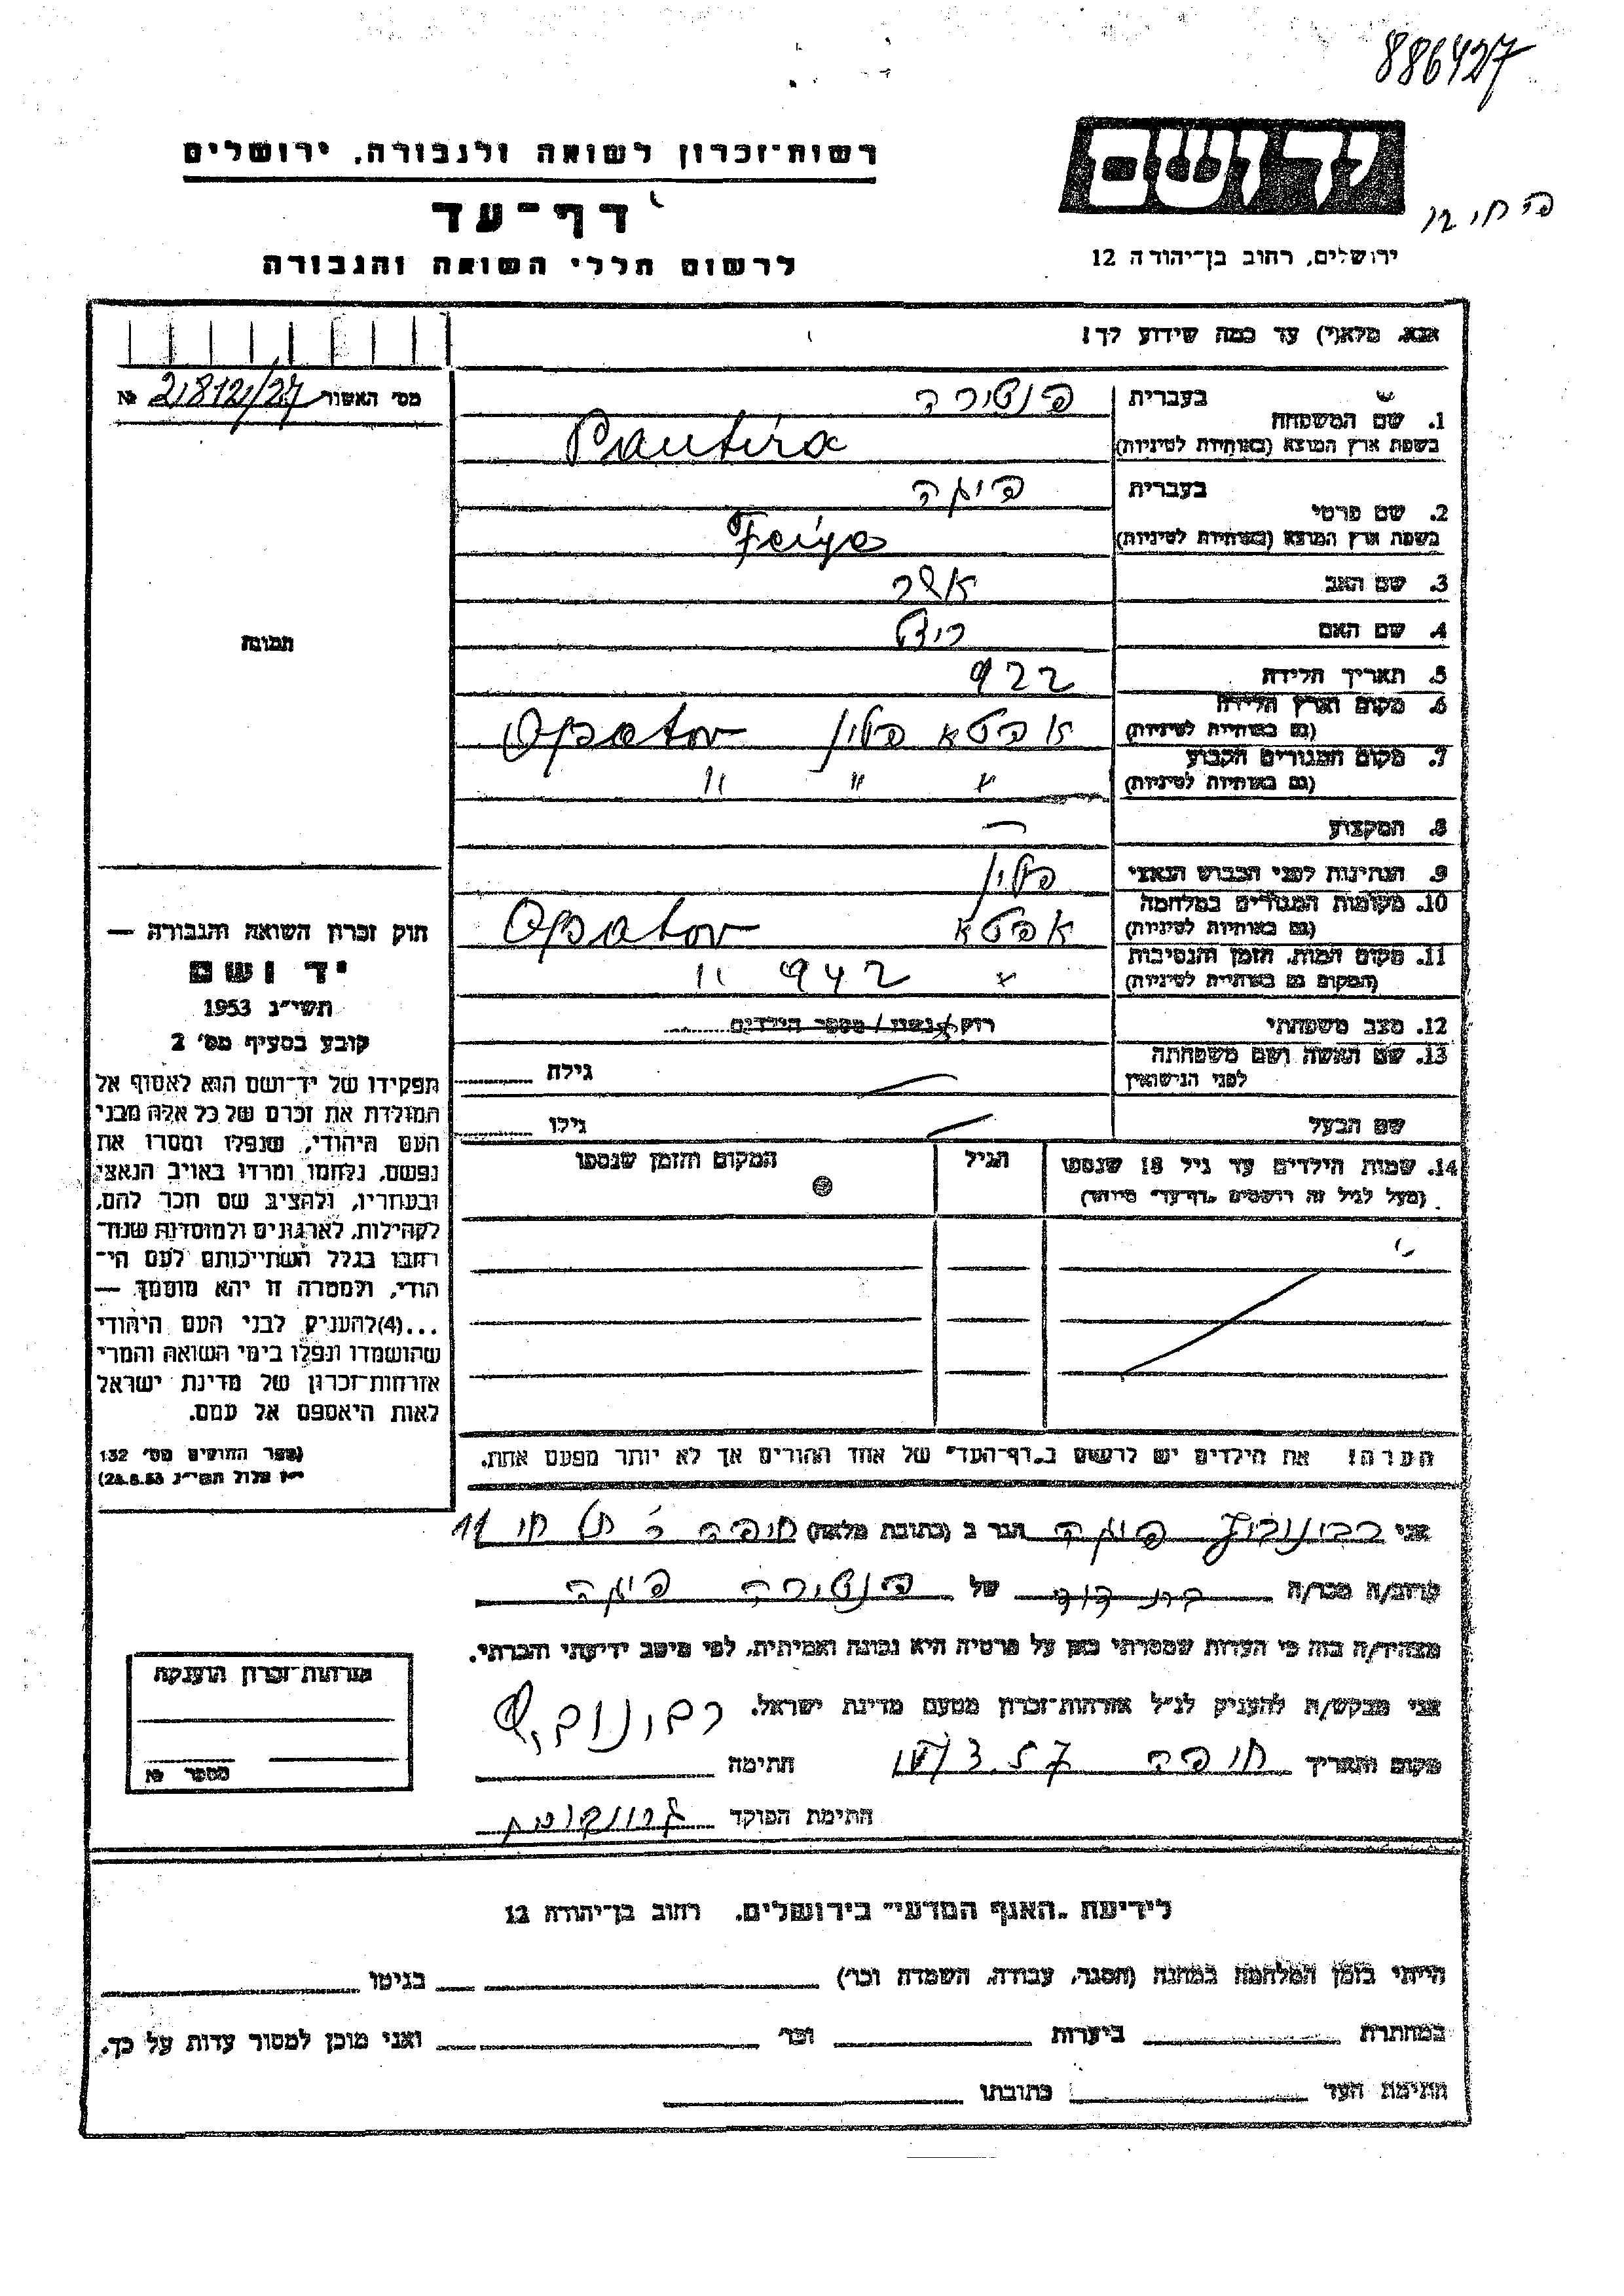 886427
רשות־זכרון לשואה ולגבורה, ירושלים
דף־עד
לרשום חללי השואה והגבורה
יד ושם
ירושלים, רחוב בן־יהודה 12
אנא, מלא(י) עד כמה שידוע לך!
מס׳ האשור 21812/27 №
1. שם המשפחה
בעברית פנטירה
בשפת ארץ המוצא (באותיות לטיניות) Pantira
2. שם פרטי
בעברית פיגה
בשפת ארץ המוצא (באותיות לטיניות) Feiga
3. שם האב אשר
4. שם האם
5. תאריך הלידה 922
6. מקום וארץ הלידה
(גם באותיות לטיניות) אפטא פולין Opatov
7. מקום המגורים הקבוע
(גם באותיות לטיניות) " " "
8. המקצוע —
9. הנתינות לפני הכבוש הנאצי פולין
10. מקומות המגורים במלחמה
(גם באותיות לטיניות) אפטא Opatov
11. מקום המות, הזמן והנסיבות
(המקום גם באותיות לטיניות) " 942 "
12. מצב משפחתי רווק/נשוי/מספר הילדים
13. שם האשה ושם משפחתה
לפני הנישואין גילה
שם הבעל גילו
14. שמות הילדים עד גיל 18 שנספו
(מעל לגיל זה רושמים „דף־עד״ מיוחד)
הגיל
המקום והזמן שנספו
הערה! את הילדים יש לרשום ב„דף־העד״ של אחד ההורים אך לא יותר מפעם אחת.
תמונה
חוק זכרון השואה והגבורה —
יד ושם
תשי״ג 1953
קובע בסעיף מס׳ 2
תפקידו של יד־ושם הוא לאסוף אל
המולדת את זכרם של כל אלה מבני
העם היהודי, שנפלו ומסרו את
נפשם, נלחמו ומרדו באויב הנאצי
ובעוזריו, ולהציב שם וזכר להם,
לקהילות, לארגונים ולמוסדות שנח־
רבו בגלל השתייכותם לעם הי־
הודי, ולמטרה זו יהא מוסמך —
...(4)להעניק לבני העם היהודי
שהושמדו ונפלו בימי השואה והמרי
אזרחות־זכרון של מדינת ישראל
לאות היאספם אל עמם.
(ספר החוקים מס׳ 132
י״ז אלול תשי״ג 28.8.53)
אני הגר ב (כתובת מלאה) חיפה תל חי 11
קרוב/ה מכר/ה בת דוד של פנטירה פיגה
מצהיר/ה בזה כי העדות שמסרתי כאן על פרטיה היא נכונה ואמיתית, לפי מיטב ידיעתי והכרתי.
אני מבקש/ת להעניק לנ״ל אזרחות־זכרון מטעם מדינת ישראל.
מקום ותאריך חיפה חתימה
חתימת הפוקד
אזרחות־זכרון הוענקה
מספר №
לידיעת „האגף המדעי״ בירושלים, רחוב בן־יהודה 12
הייתי בזמן המלחמה במחנה (הסגר, עבודה, השמדה וכו׳) בגיטו
במחתרת ביערות וכו׳ ואני מוכן למסור עדות על כך.
חתימת העד כתובתו